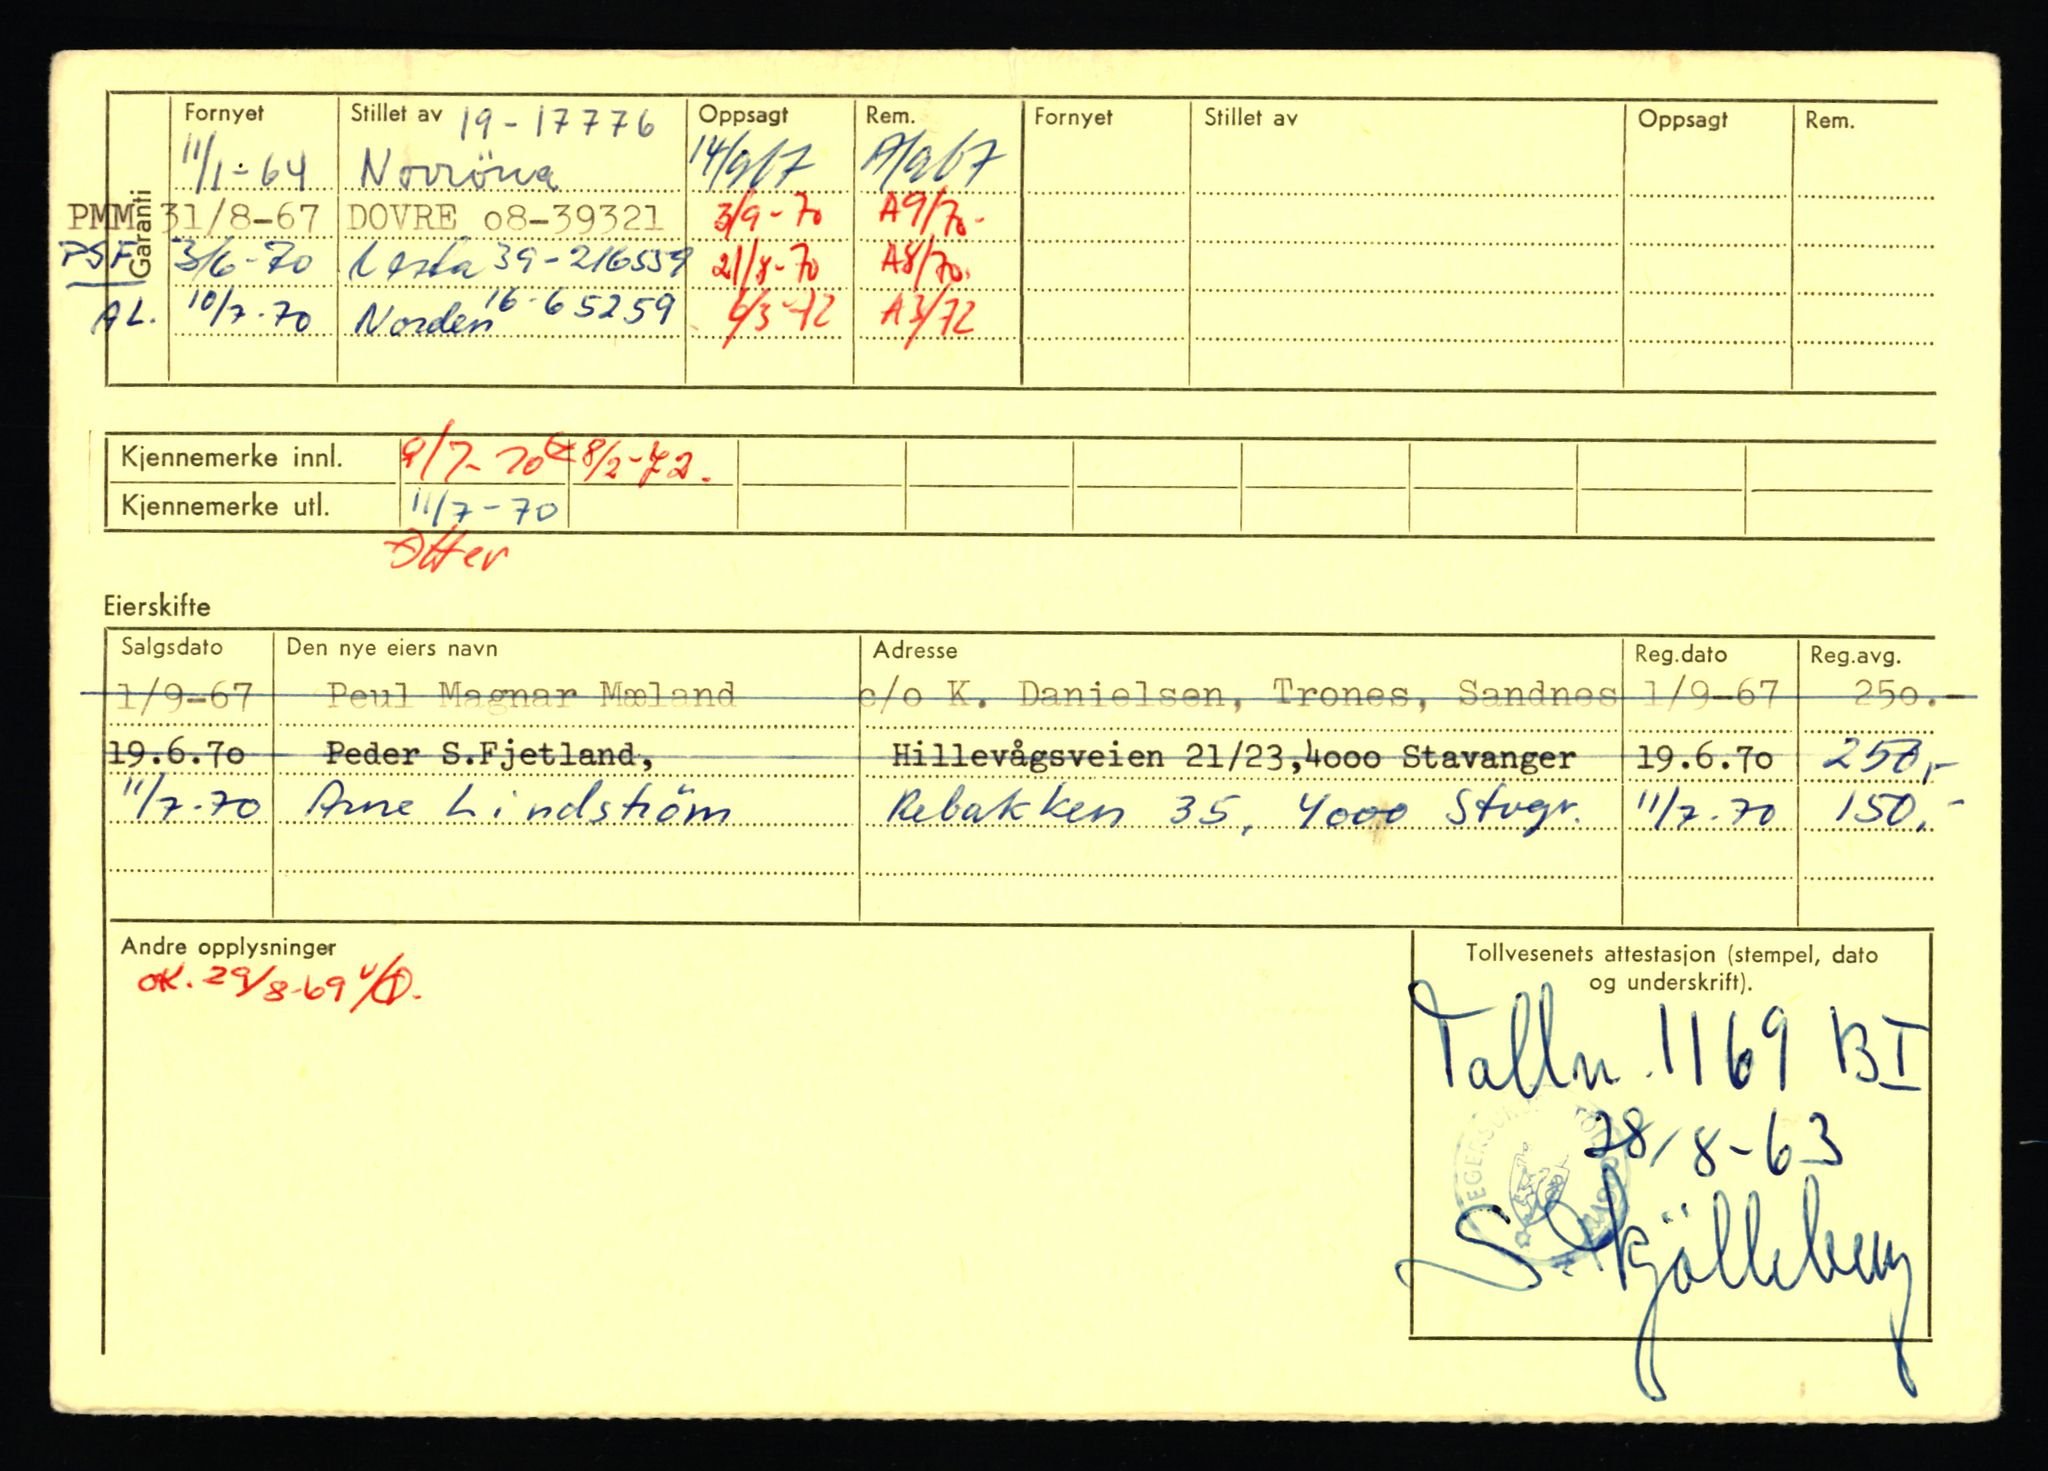 Garanti
Fornyet Stillet av 19-17776 Oppsagt Rem. Fornyet Stillet av Oppsagt Rem.
11/1-64 Norröna 14/9 67 A/9 67
PMM 31/8-67 DOVRE o8-39321 3/9-70 A9/70.
PSF 3/6-70 Vesta 39-216559 21/8-70 A8/70.
AL. 10/7-70 Norden 16-65259 6/3-72 A3/72
Kjennemerke innl. 9/7-70 8/2-72.
Kjennemerke utl. 11/7-70
Atter
Eierskifte
Salgsdato Den nye eiers navn Adresse Reg.dato Reg.avg.
1/9-67 Peul Magnar Mæland c/o K. Danielsen, Trones, Sandnes 1/9-67 25o.-
19.6.7o Peder S.Fjetland, Hillevågsveien 21/23,4ooo Stavanger 19.6.7o 250,-
11/7-70 Arne Lindström Rebakken 35, 4000 Stvgr. 11/7-70 150,-
Andre opplysninger
OK. 29/8-69
Tollvesenets attestasjon (stempel, dato
og underskrift).
Tolln. 1169 BI
28/8-63
S. Skjölleberg
EGERSUND